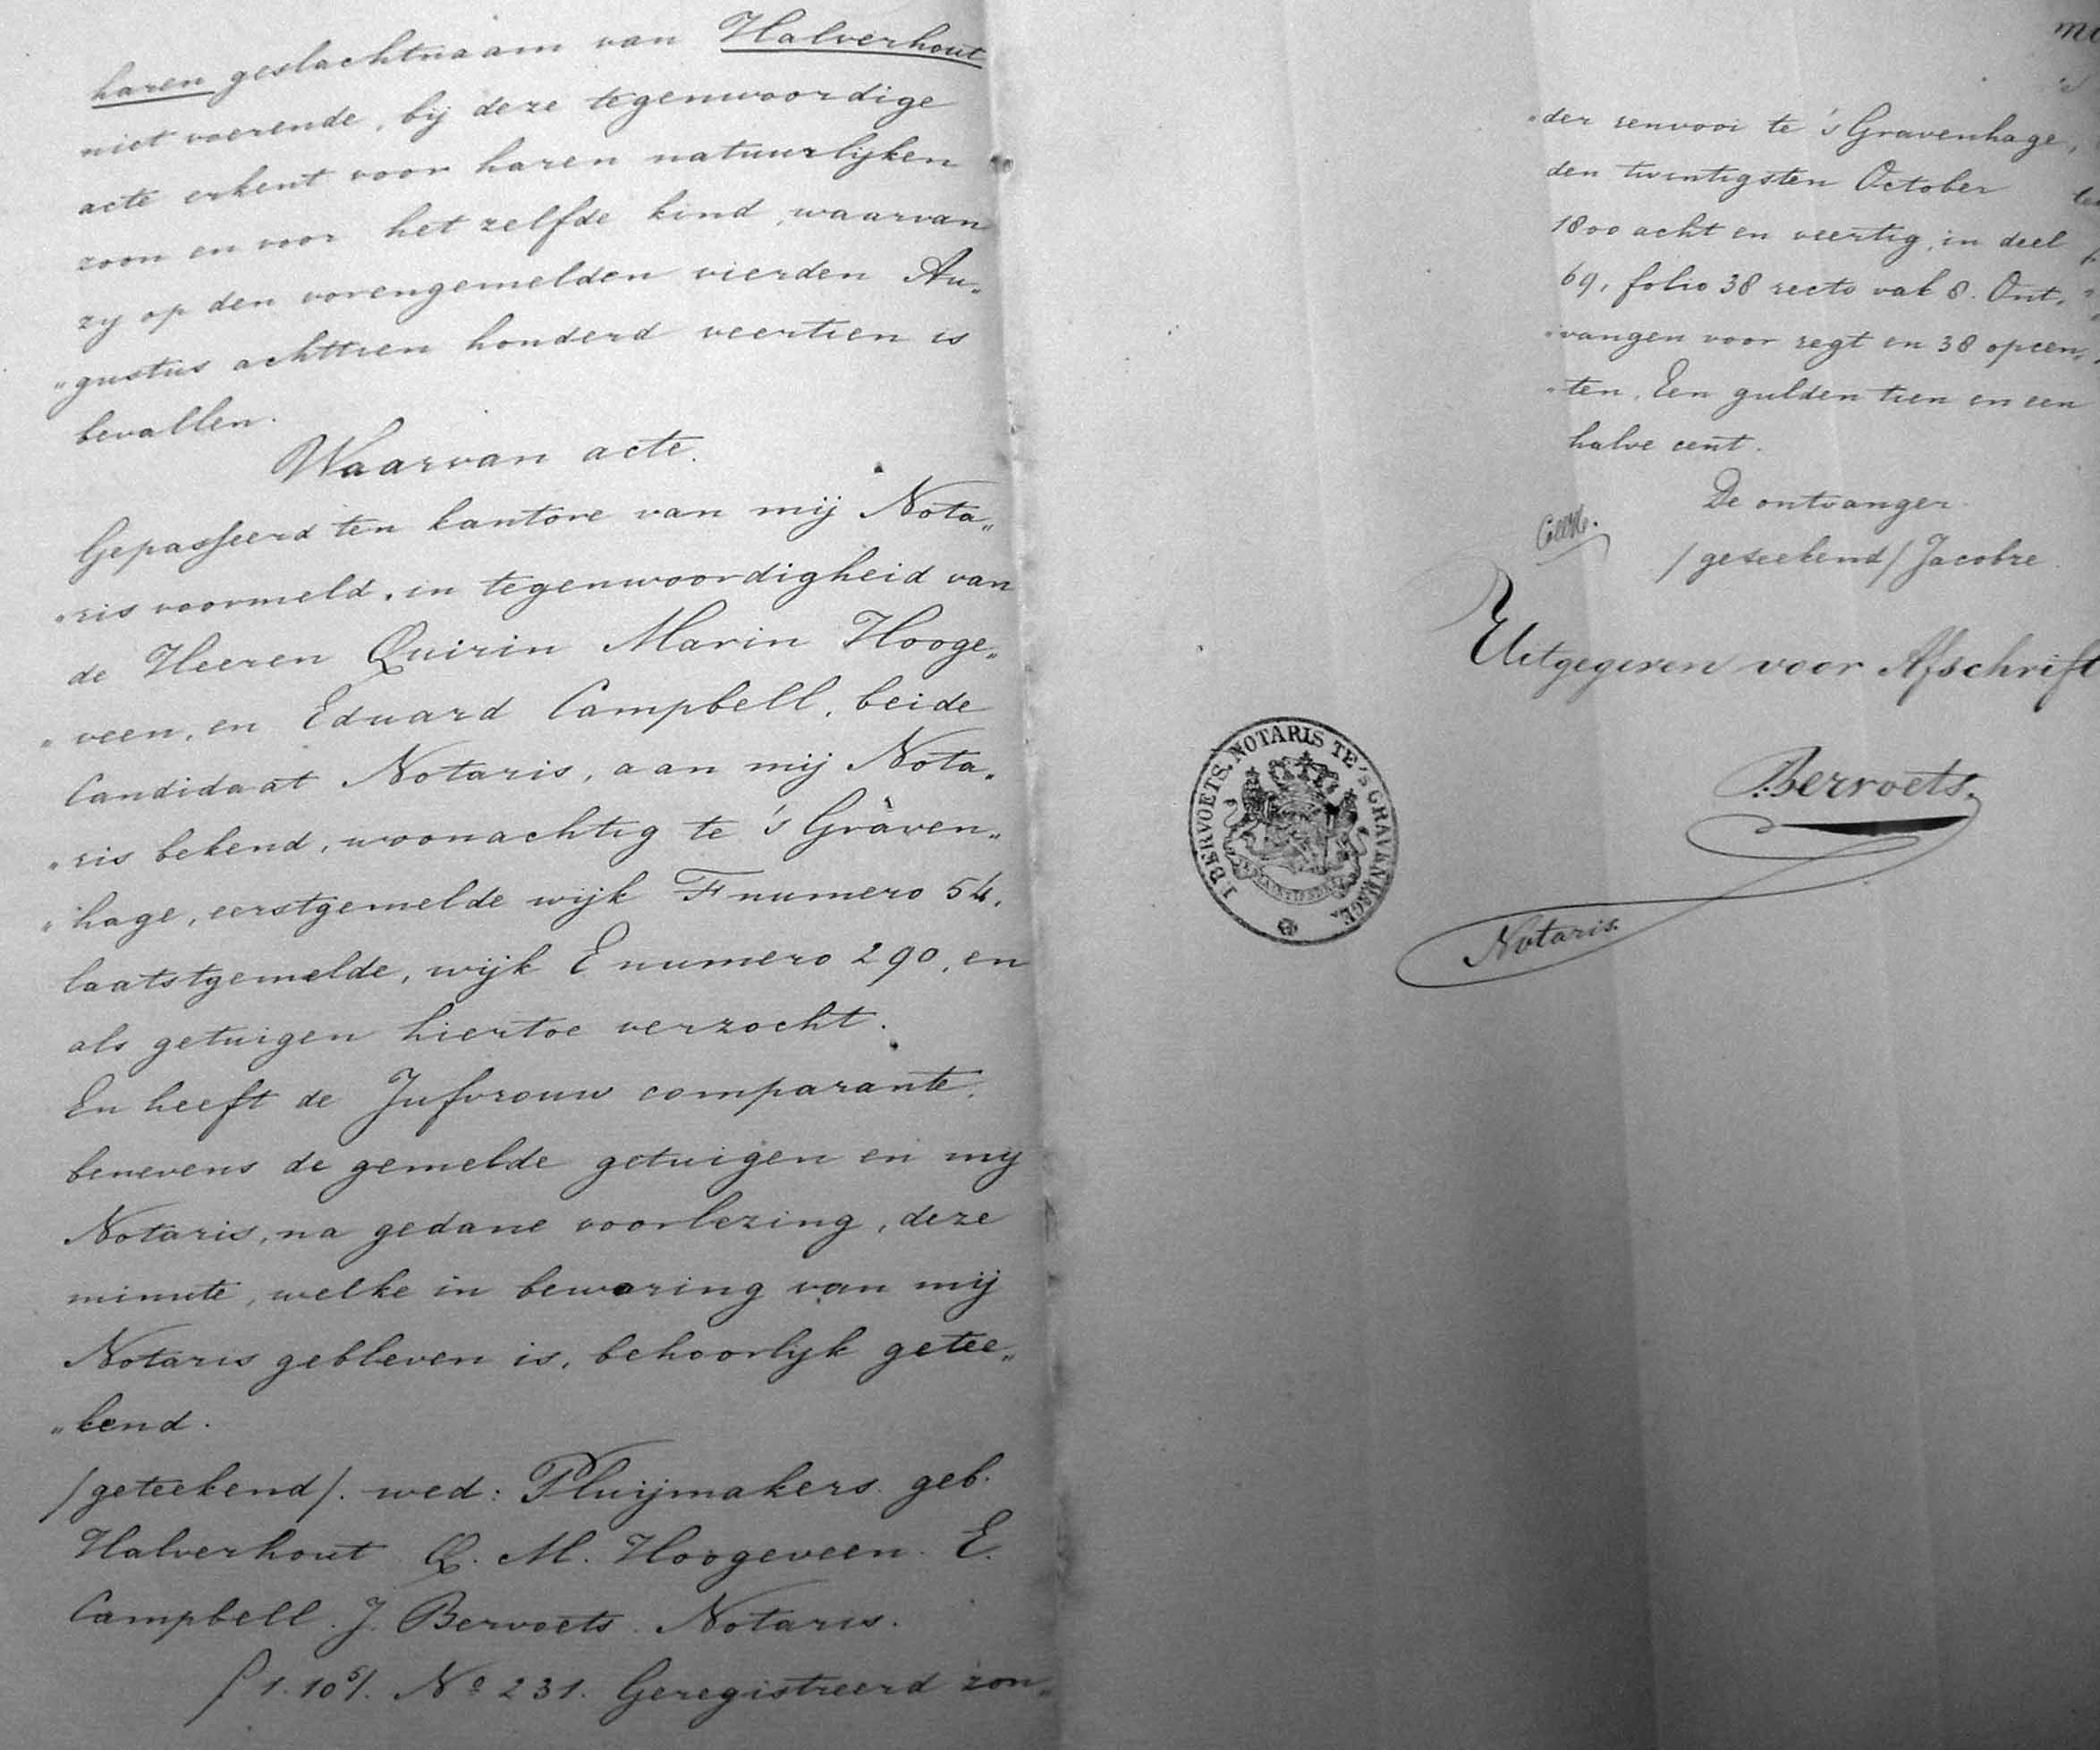 haren geslachtnaam van Halverhout
niet voerende, bij deze tegenwoordige
acte erkent voor haren natuurlijken
zoon en voor het zelfde kind, waarvan
zy op den vorengemelden vierden Au„
„gustus achttien honderd veertien is
bevallen.
Waarvan acte.
Gepasseerd ten kantore van mij Nota„
„ris voormeld, in tegenwoordigheid van
de Heeren Quirin Marin Hooge„
„veen, en Eduard Campbell, beide
Candidaat Notaris, aan mij Nota„
„ris bekend, woonachtig te 's Graven„
„hage, eerstgemelde wijk F numero 54,
laatstgemelde, wijk E numero 290, en
als getuigen hiertoe verzocht.
En heeft de Jufvrouw comparante,
benevens de gemelde getuigen en my
Notaris, na gedane voorlezing, deze
minute, welke in bewaring van mij
Notaris gebleven is, behoorlyk getee„
„kend.
/geteekend/. wed: Pluijmakers geb.
Halverhout Q. M. Hoogeveen. E.
Campbell. J. Bervoets. Notaris.
ƒ 1.10⁵/. Nº 231. Geregistreerd zon„
„der renvooi te 's Gravenhage,
den twintigsten October
1800 acht en veertig, in deel
69, folio 38 recto vak 8. Ont„
„vangen voor regt en 38 opcen„
„ten, Een gulden tien en een
halve cent.
De ontvanger.
/geteekend/ Jacobre
Uitgegeven voor Afschrift
J. BERVOETS. NOTARIS TE 'S GRAVENHAGE.
Bervoets.
Notaris.